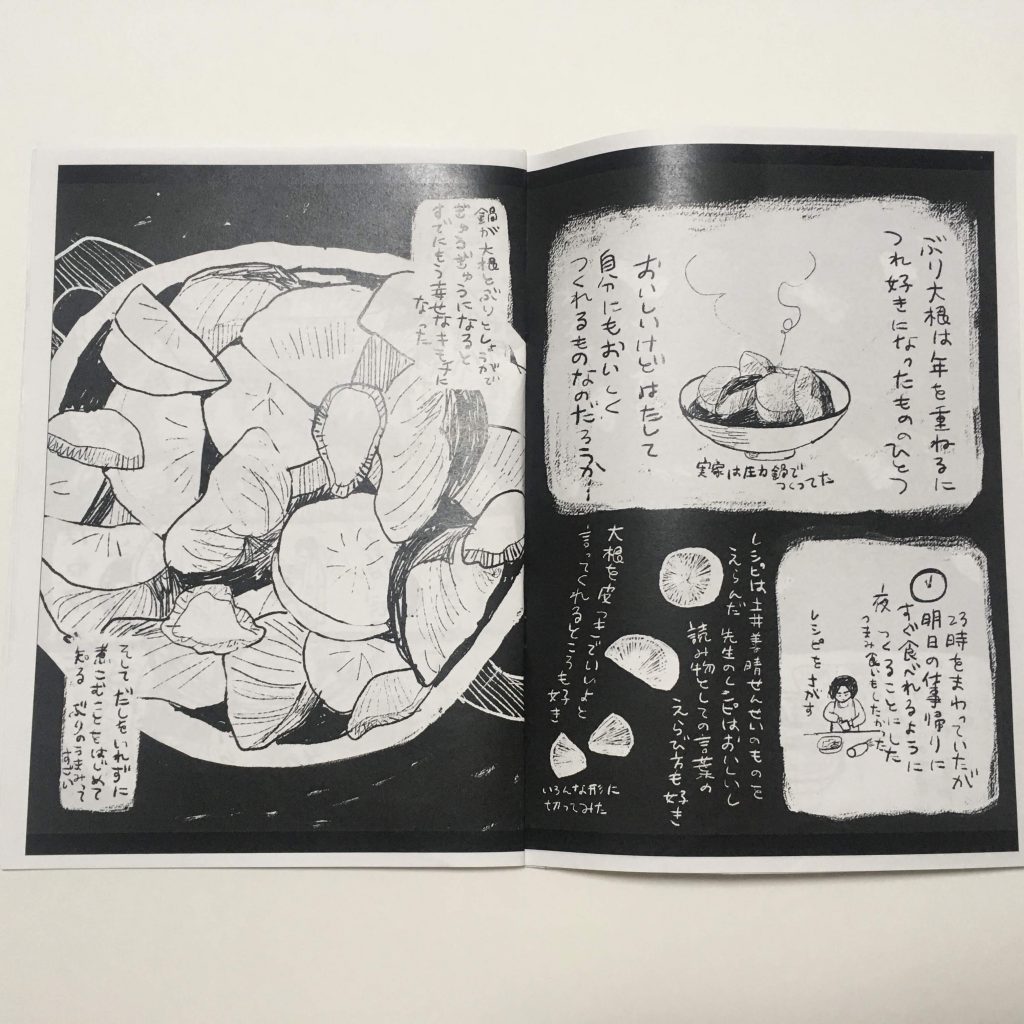 ぶり大根は年を重ねるに
つれ好きになったもののひとつ
おいしいけどはたして
自分にもおいしく
つくれるものなのだろうか…
実家は圧力鍋で
つくってた
23時をまわっていたが
明日の仕事帰りに
すぐ食べれるように
夜つくることにした
つまみ食いもしたかった
レシピをさがす
レシピは土井善晴せんせいのものを
えらんだ 先生のレシピはおいしいし
読み物としての言葉の
えらび方も好き
大根を皮つきでいいよと
言ってくれるところも好き
いろんな形に
切ってみた
鍋が大根とぶりとしょうがで
ぎゅうぎゅうになると
すでにもう幸せなキモチに
なった
そしてだしをいれずに
煮こむことをはじめて
知る ぶりのうまみって
すごい